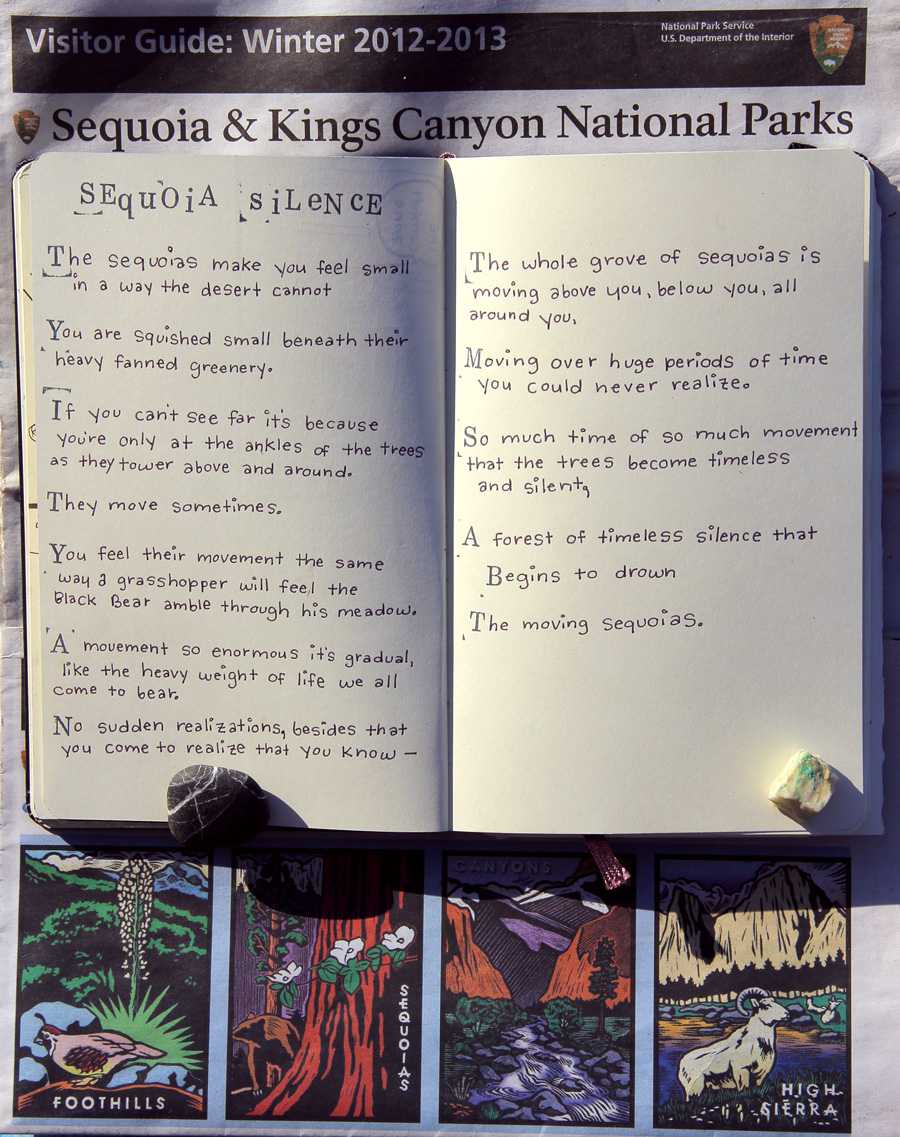 Visitor Guide: Winter 2012-2013
National Park Service
U.S. Department of the Interior
Sequoia & Kings Canyon National Parks
SEquOiA SiLENCE
The sequoias make you feel small
in a way the desert cannot
You are squished small beneath their
heavy fanned greenery.
If you can't see far it's because
you're only at the ankles of the trees
as they tower above and around.
They move sometimes.
You feel their movement the same
way a grasshopper will feel the
Black Bear amble through his meadow.
A movement so enormous it's gradual,
like the heavy weight of life we all
come to bear.
No sudden realizations, besides that
you come to realize that you know —
The whole grove of sequoias is
moving above you, below you, all
around you,
Moving over huge periods of time
you could never realize.
So much time of so much movement
that the trees become timeless
and silent,
A forest of timeless silence that
Begins to drown
The moving sequoias.
FOOTHILLS
SEQUOIAS
CANYONS
HIGH
SIERRA